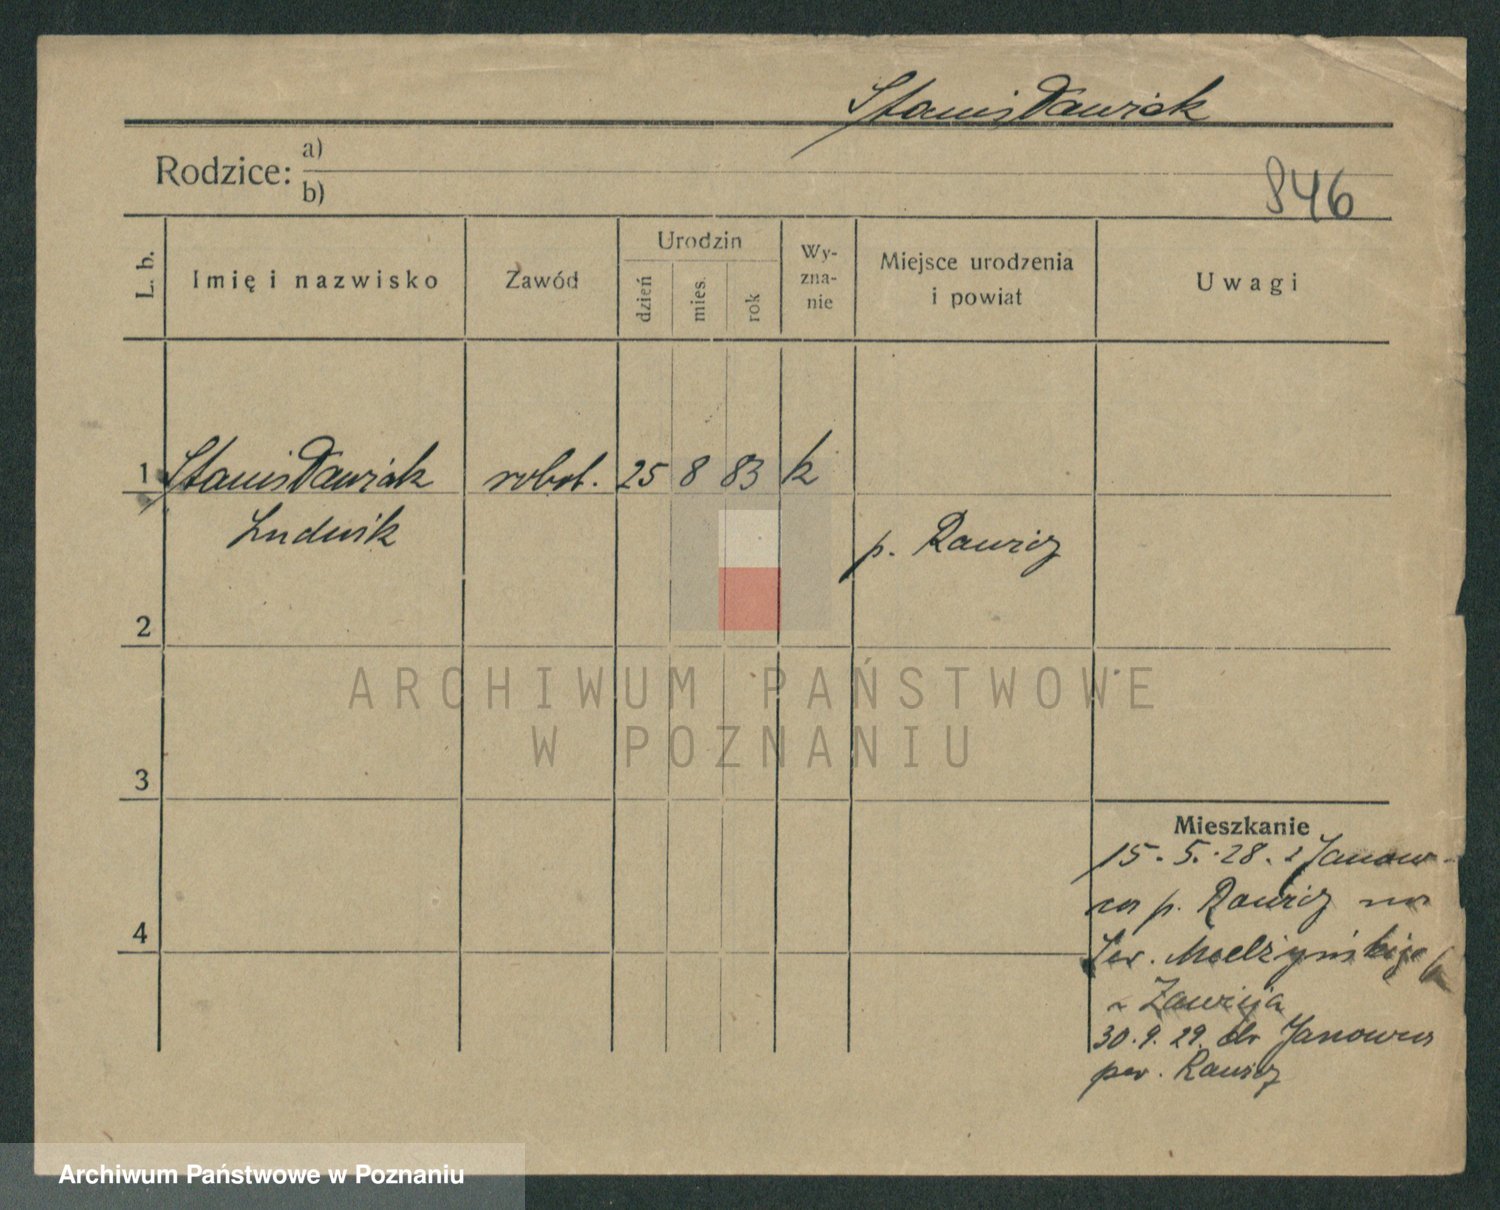 Stanisławiak
Rodzice: a)
b)
846
L. b.
Imię i nazwisko
Zawód
Urodzin
dzień
mies.
rok
Wy-
zna-
nie
Miejsce urodzenia
i powiat
Uwagi
1 Stanisławiak robot. 25 8 83 k
Ludwik
p. Rawicz
2
3
4
Mieszkanie
15.5.28. z Janow-
ca p. Rawicz na
Ser. Mielżyńskiego
Zawieja
30.9.29. do Janowca
pow. Rawicz
ARCHIWUM PAŃSTWOWE
W POZNANIU
Archiwum Państwowe w Poznaniu